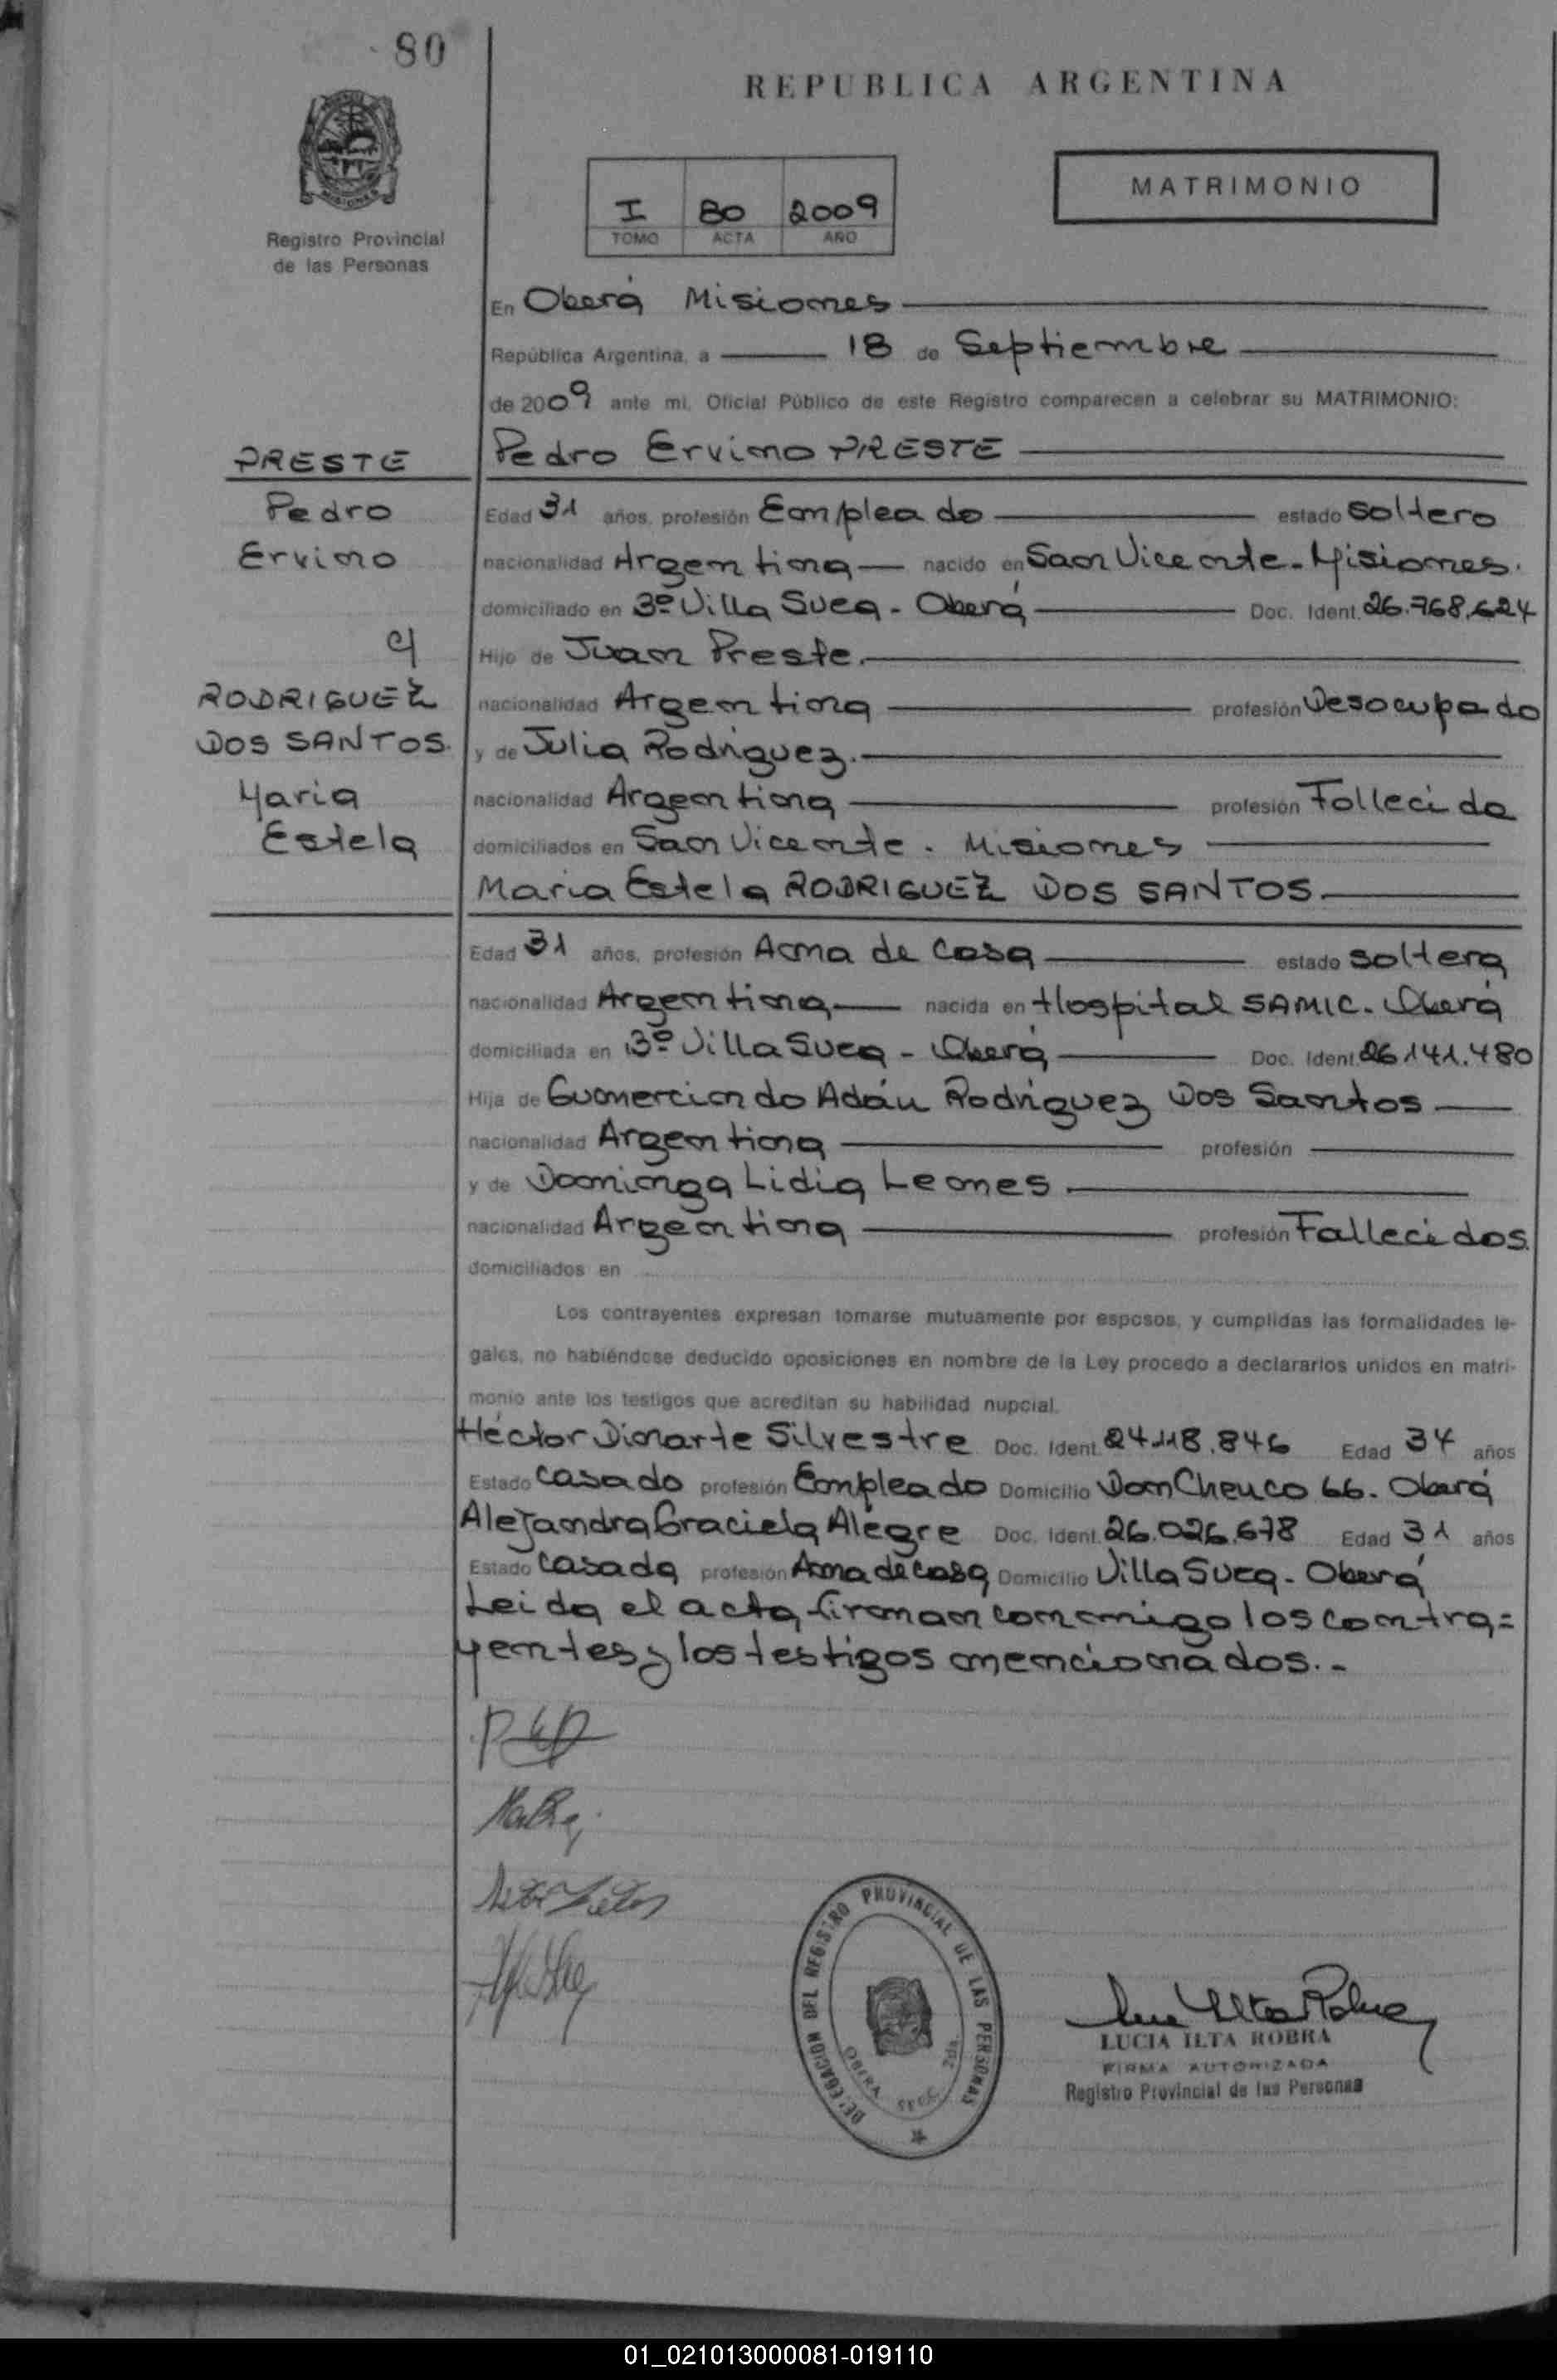 80
REPUBLICA ARGENTINA
MISIONES
Registro Provincial
de las Personas
I 80 2009
TOMO ACTA AÑO
MATRIMONIO
En Oberá Misiones
República Argentina, a 18 de Septiembre
de 2009 ante mi, Oficial Público de este Registro comparecen a celebrar su MATRIMONIO:
PRESTE
Pedro
Ervino
c/
RODRIGUEZ
DOS SANTOS.
Maria
Estela
Pedro Ervino PRESTE
Edad 31 años, profesión Empleado estado soltero
nacionalidad Argentina nacido en San Vicente - Misiones.
domiciliado en 3º Villa Sueca - Oberá Doc. Ident. 26.768.624
Hijo de Juan Preste.
nacionalidad Argentina profesión Desocupado
y de Julia Rodriguez.
nacionalidad Argentina profesión Fallecida
domiciliados en San Vicente. Misiones
Maria Estela RODRIGUEZ DOS SANTOS.
Edad 31 años, profesión Ama de Casa estado soltera
nacionalidad Argentina nacida en Hospital SAMIC. Oberá
domiciliada en 3º Villa Sueca - Oberá Doc. Ident. 26.141.480
Hija de Gumercindo Adán Rodriguez Dos Santos
nacionalidad Argentina profesión
y de Dominga Lidia Leones
nacionalidad Argentina profesión Fallecidos.
domiciliados en
Los contrayentes expresan tomarse mutuamente por esposos, y cumplidas las formalidades le-
gales, no habiéndose deducido oposiciones en nombre de la Ley procedo a declararlos unidos en matri-
monio ante los testigos que acreditan su habilidad nupcial.
Héctor Dinarte Silvestre Doc. Ident. 24.118.846 Edad 34 años
Estado casado profesión Empleado Domicilio Don Cheuco 66. Oberá
Alejandra Graciela Alegre Doc. Ident. 26.026.678 Edad 31 años
Estado Casada profesión Ama de casa Domicilio Villa Sueca - Oberá
Leida el acta, firman conmigo los contra=
yentes y los testigos mencionados.-
DELEGACION DEL REGISTRO PROVINCIAL DE LAS PERSONAS
OBERA SECC. 2da.
LUCIA ILTA ROBRA
FIRMA AUTORIZADA
Registro Provincial de las Personas
01_021013000081-019110